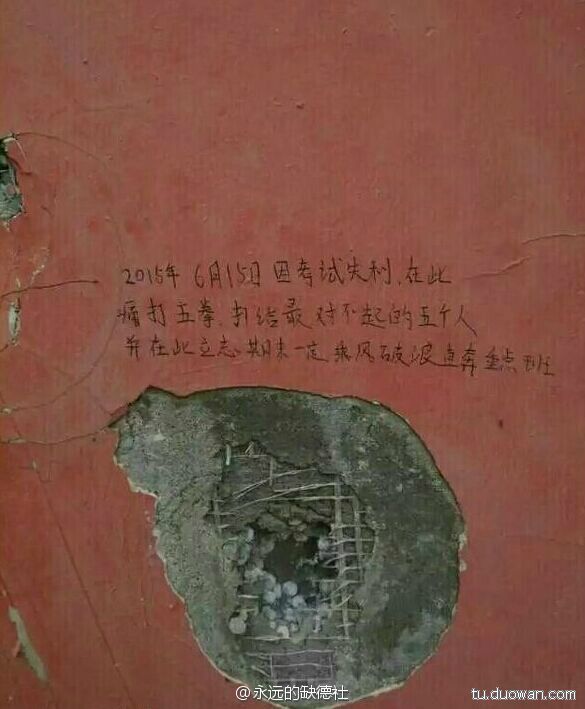 2015年 6月15日因考试失利,在此
痛打五拳,打给最对不起的五个人
并在此立志期末一定乘风破浪直奔重点班
@永远的缺德社
tu.duowan.com